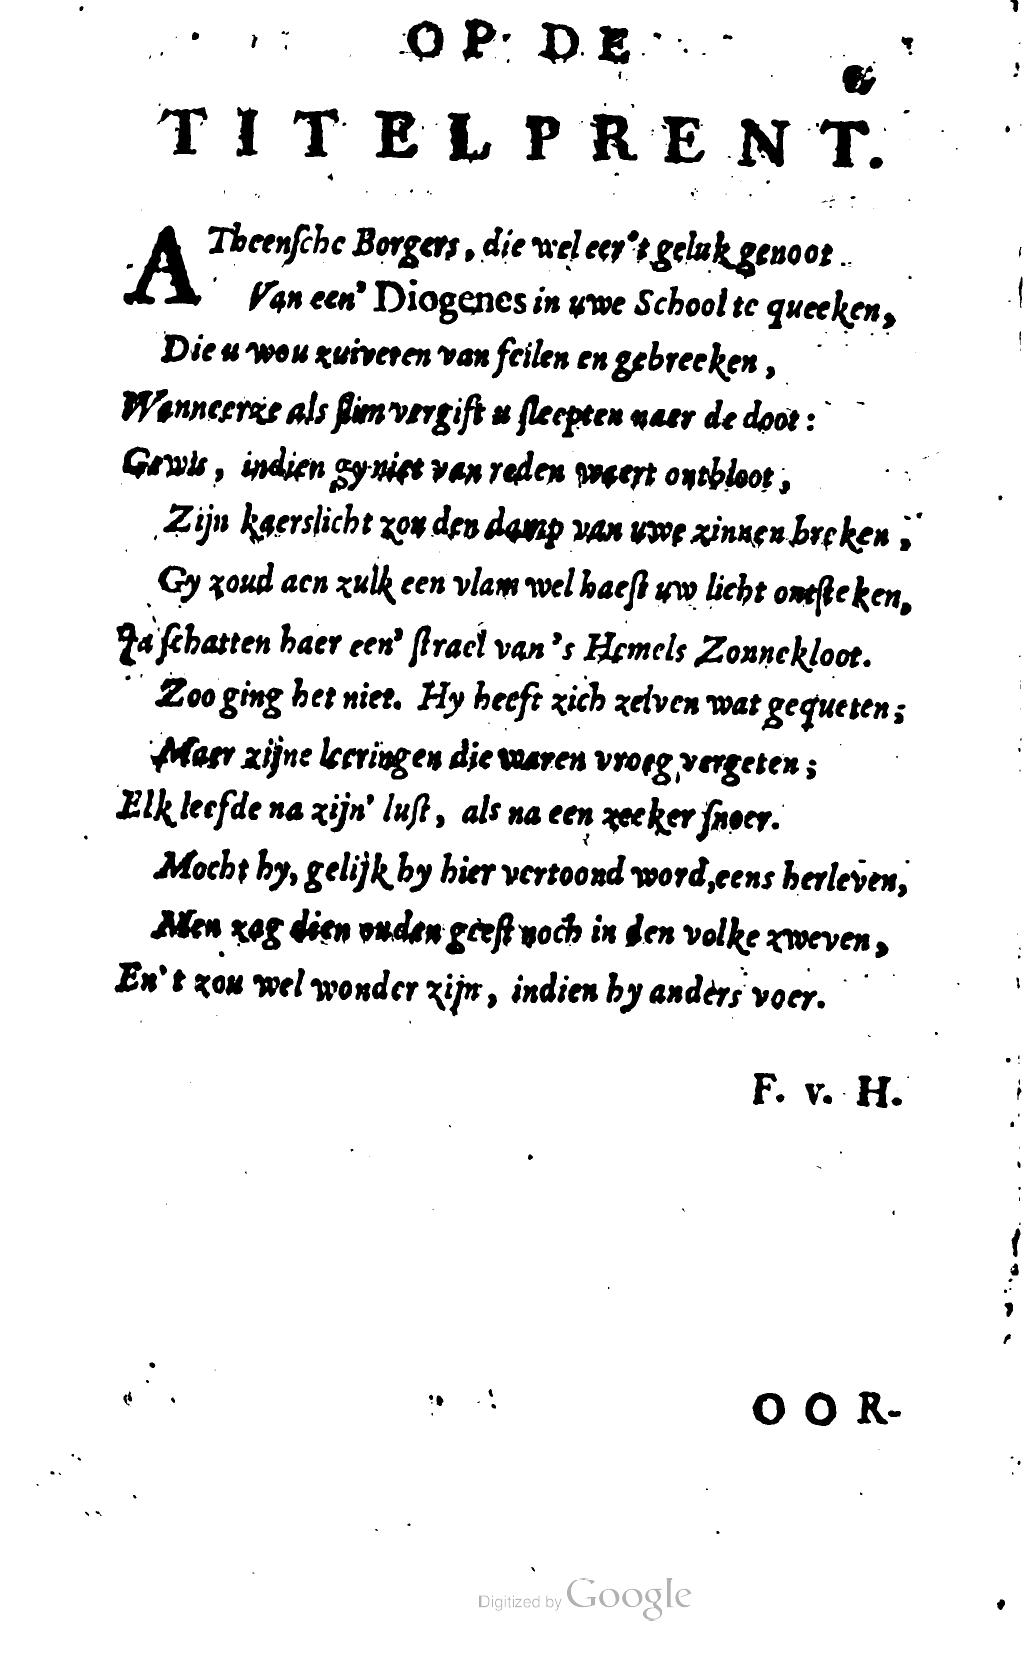 OP DE
TITELPRENT.
ATheenſche Borgers, die wel eer 't geluk genoot
Van een' Diogenes in uwe School te queeken,
Die u wou zuiveren van feilen en gebreeken,
Wanneerze als ſlim vergift u ſleepten naer de doot:
Gewis, indien gy niet van reden waert ontbloot,
Zijn kaerslicht zou den damp van uwe zinnen breken,
Gy zoud aen zulk een vlam wel haeſt uw licht ontſteken,
Ja ſchatten haer een' ſtrael van 's Hemels Zonnekloot.
Zoo ging het niet. Hy heeft zich zelven wat gequeten;
Maer zijne leeringen die waren vroeg vergeten;
Elk leefde na zijn' luſt, als na een zeeker ſnoer.
Mocht hy, gelijk hy hier vertoond word, eens herleven,
Men zag dien ouden geeſt noch in den volke zweven,
En 't zou wel wonder zijn, indien hy anders voer.
F. v. H.
OOR-
Digitized by Google